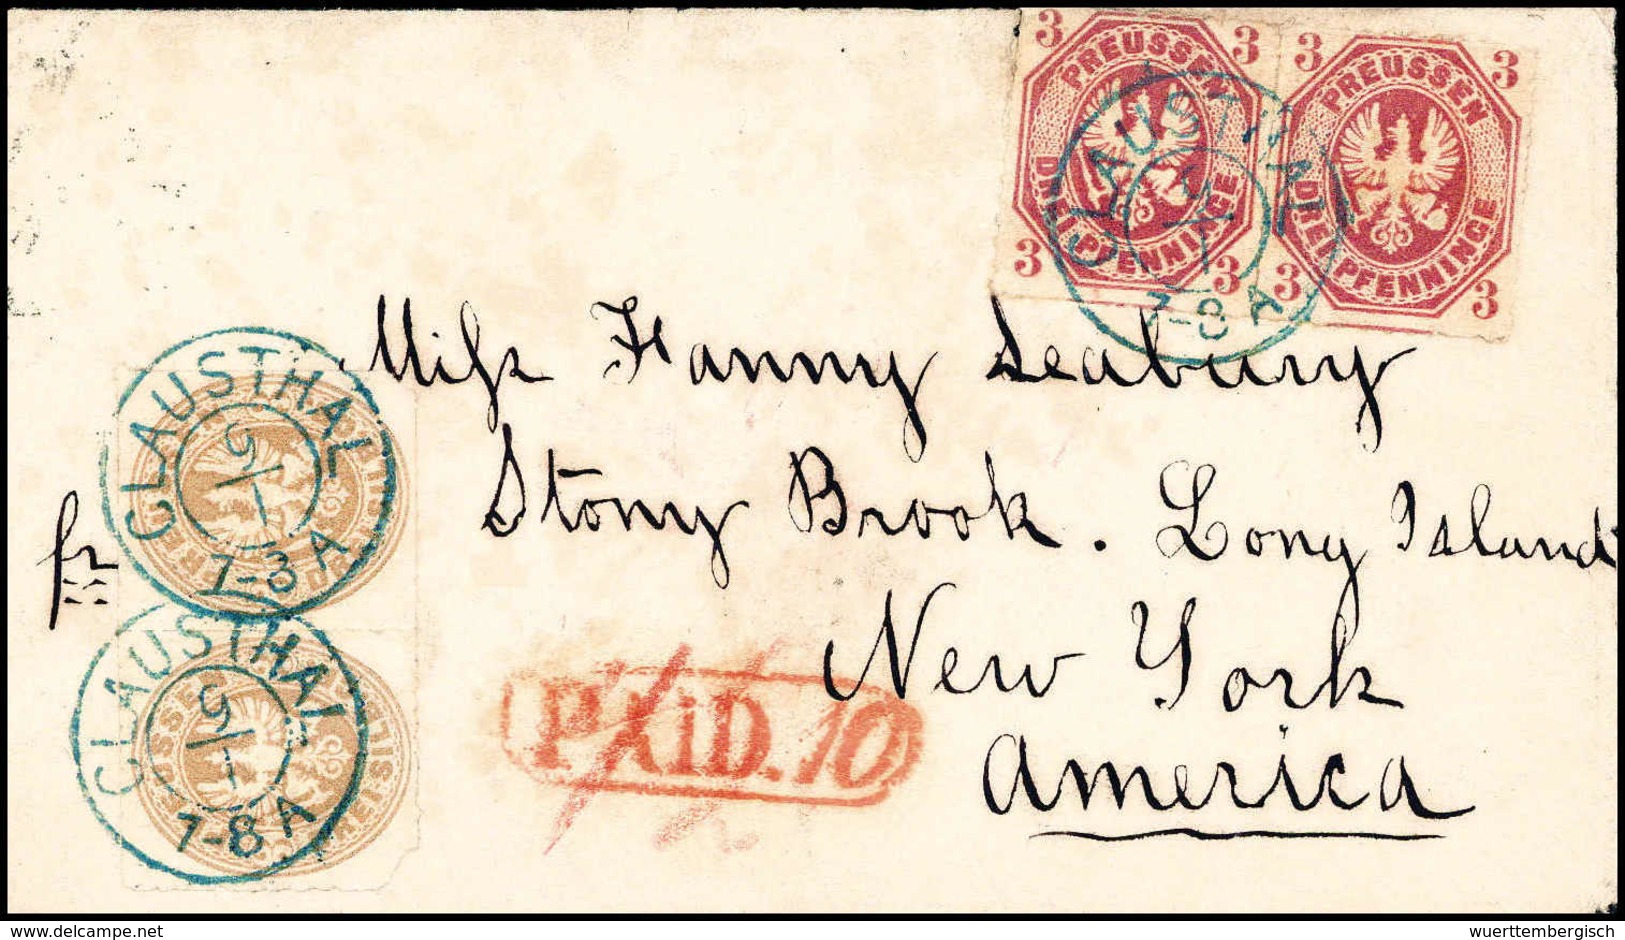 3 3
PREUSSEN
DREI PFENNINGE
3 3
3 3
PREUSSEN
DREI PFENNINGE
3 3
CLAUSTHAL
7-8 A
Miſs Fanny Seabury
Stony Brook. Long Island
New York
America
fr
CLAUSTHAL
9/1
7-8 A
CLAUSTHAL
9/1
7-8 A
PAID. 10
delcampe.net
wuerttembergisch